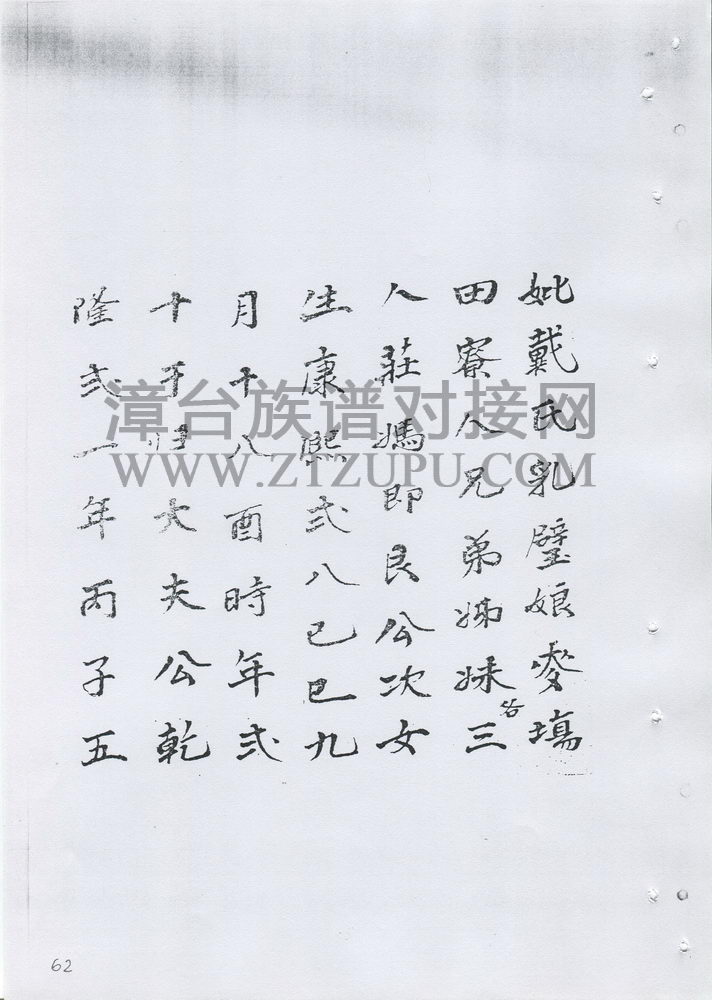 妣戴氏乳璧娘麥塲
田寮人兄弟姊妹各三
人莊媽即良公次女
生康熙弍八己巳九
月十八酉時年弍
十于归大夫公乾
隆弍一年丙子五
漳台族谱对接网
WWW.ZTZUPU.COM
62